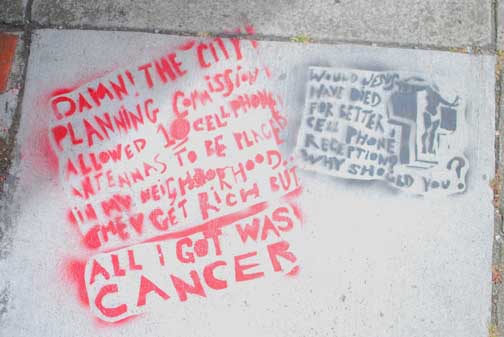 DAMN! THE CITY
PLANNING COMMISSION
ALLOWED 10 CELL PHONE
ANTENNAS TO BE PLACED
IN MY NEIGHBORHOOD..
THEY GET RICH BUT
ALL I GOT WAS
CANCER
WOULD JESUS
HAVE DIED
FOR BETTER
CELL PHONE
RECEPTION?
WHY SHOULD YOU?